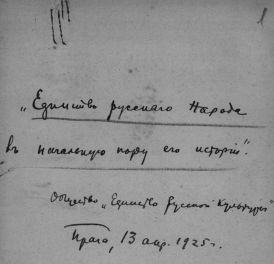 „Единство русскаго Народа
въ начальную пору его исторіи“.
Общество „Единство русской Культуры“
Прага, 13 апр. 1925 г.